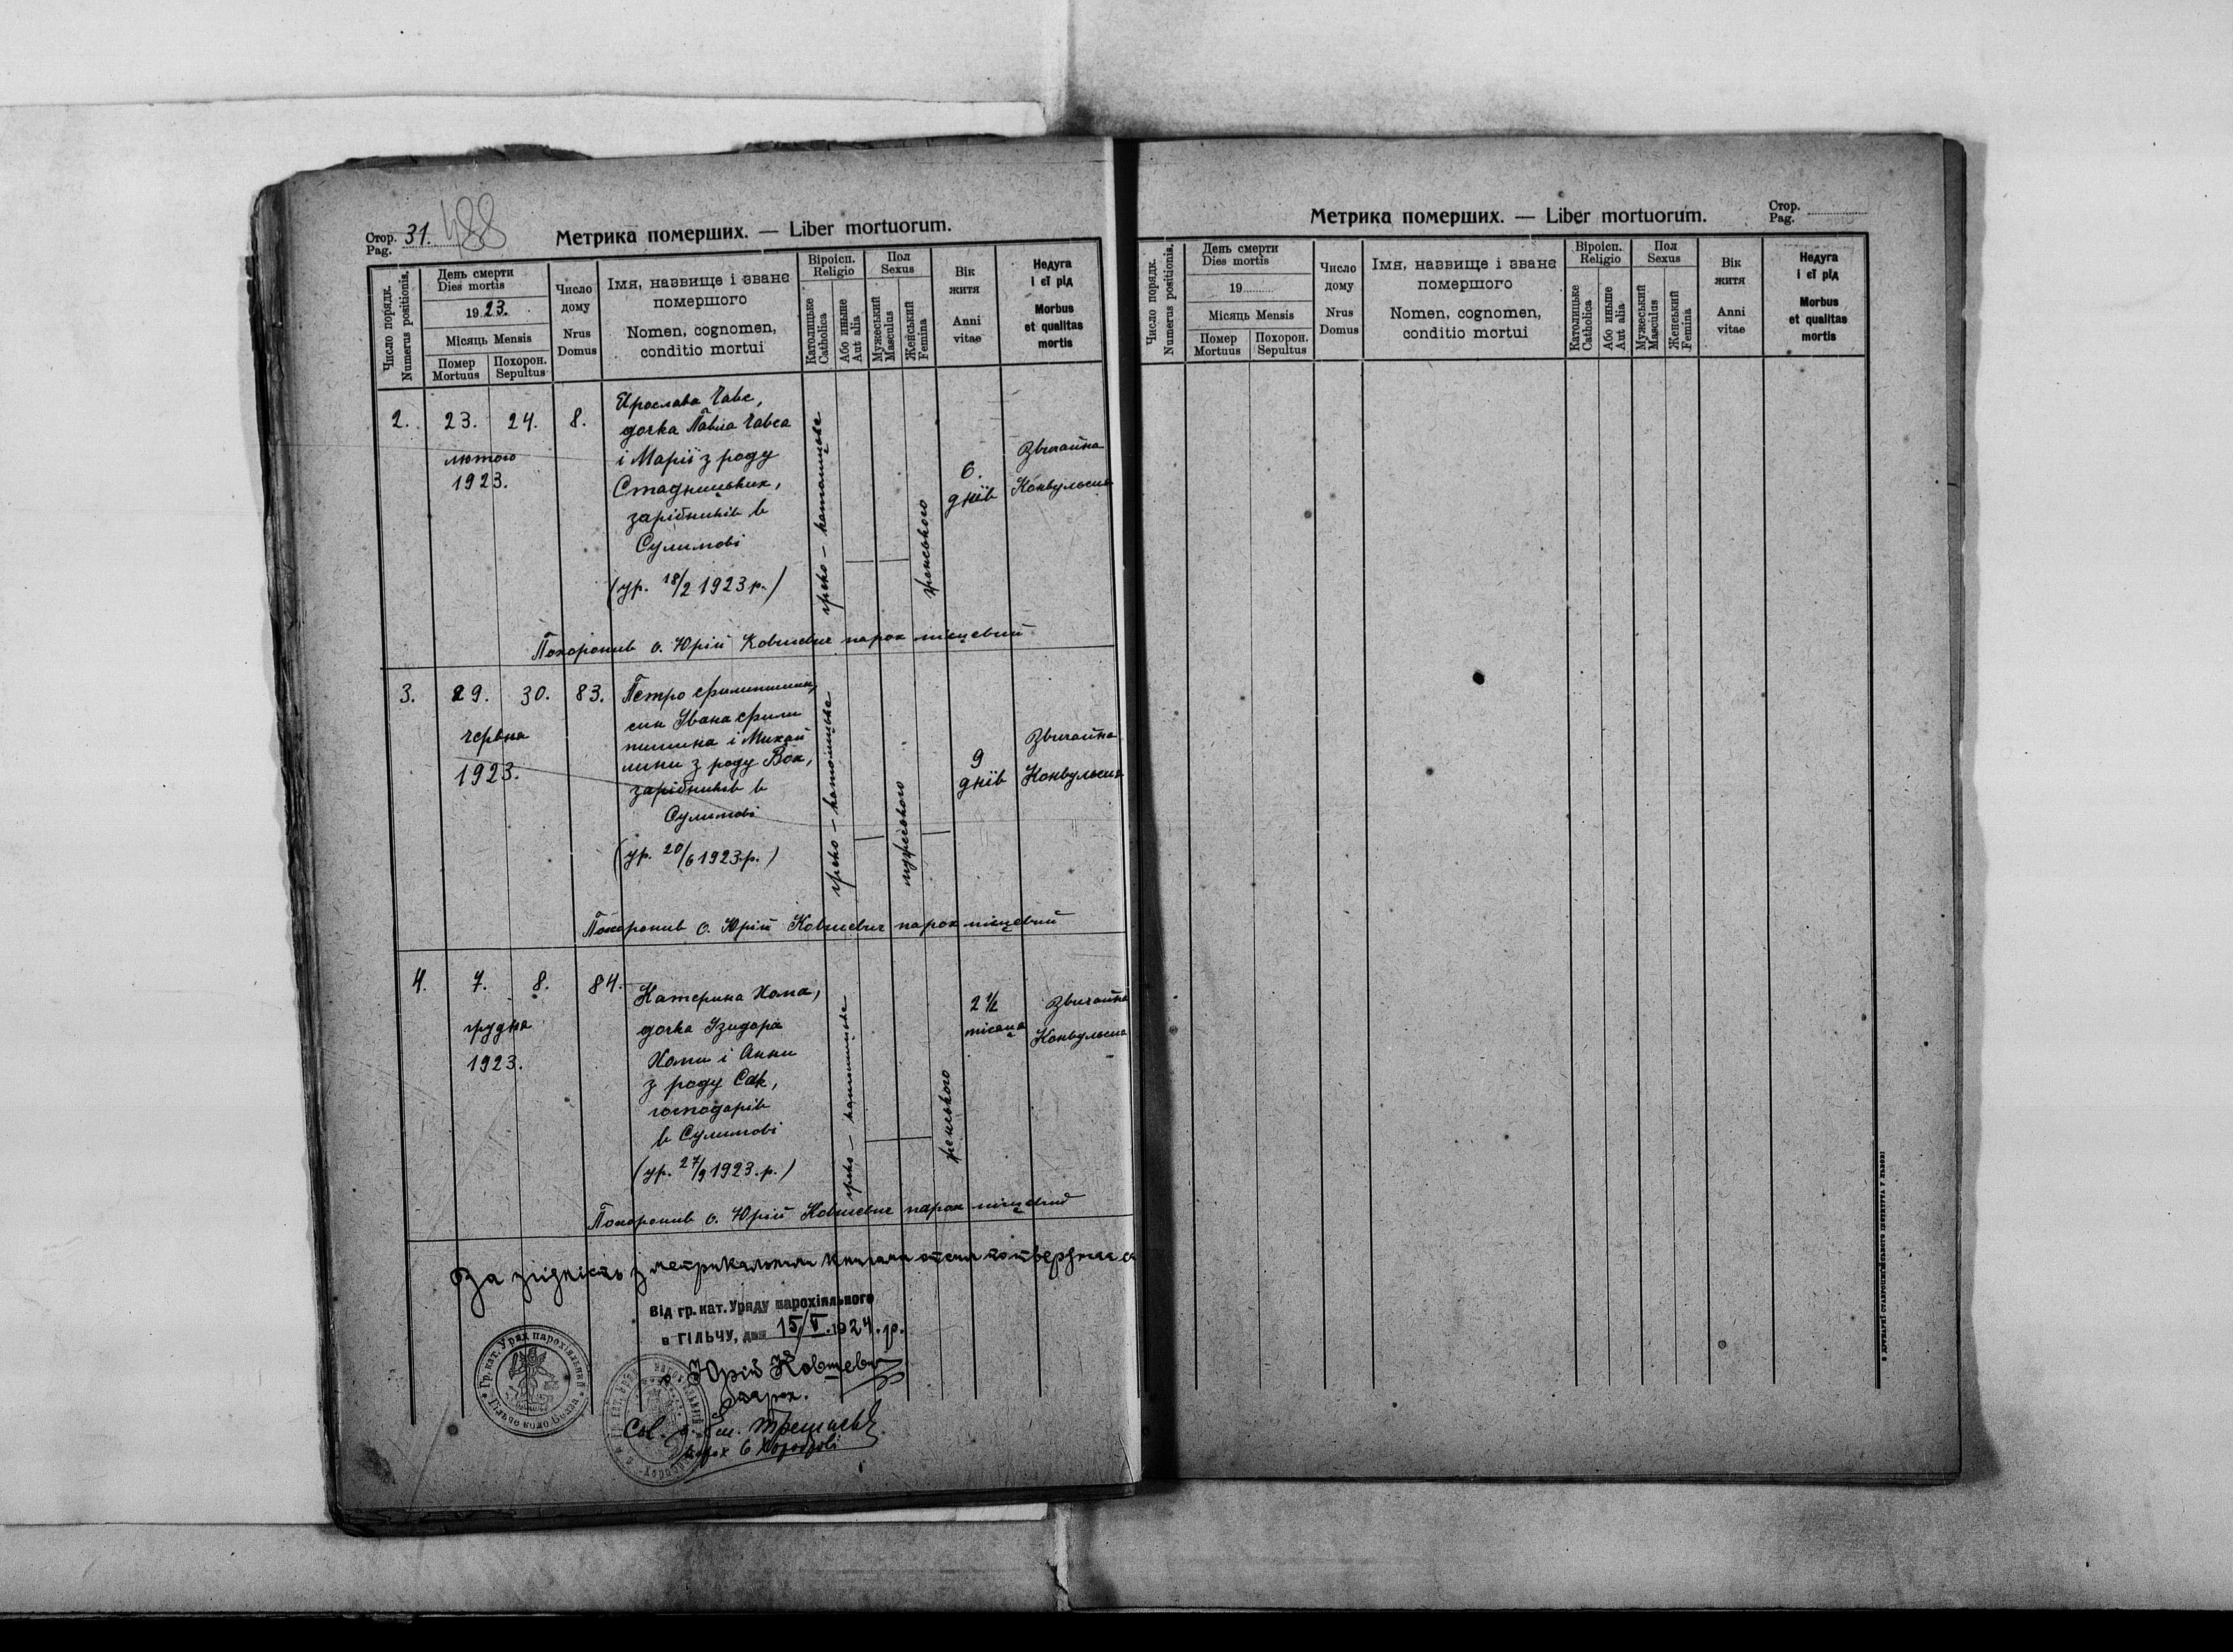 Стор. 31. 488
Pag.
Метрика померших. — Liber mortuorum.
Число порядк.
Numerus positionis.
День смерти
Dies mortis
1923.
Місяць Mensis
Помер
Mortuus
Похорон.
Sepultus
Число
дому
Nrus
Domus
Імя, назвище і званє
помершого
Nomen, cognomen,
conditio mortui
Віроісп.
Religio
Католицьке
Catholica
Або иньше
Aut alia
Пол
Sexus
Мужеський
Masculus
Женський
Femina
Вік
житя
Anni
vitae
Недуга
і єї рід
Morbus
et qualitas
mortis
2. 23. 24. 8.
лютого
1923.
Ярослава Чавс,
дочка Павла Чавса
і Марії з роду
Стадницьких,
зарібників в
Сулимові
(ур. 18/2 1923 р.)
греко - католицьке
женського
6.
днїв
Звичайна
Конвульсия
Похоронив о. Юрій Ковшевич парох місцевий
3. 29. 30. 83.
червня
1923.
Петро Филипшин,
син Івана Фили
пшина і Михай
лини з роду Вок,
зарібників в
Сулимові
(ур. 20/6 1923.р.)
греко - католицьке
мужеського
9
днїв
Звичайна
Конвульсия
Похоронив о. Юрій Ковшевич парох місцевий
4. 7. 8. 84.
грудня
1923.
Катерина Хома,
дочка Ізидора
Хоми і Анни
з роду Сак,
господарів
в Сулимові
(ур. 27/9 1923.р.)
греко - католицьке
женського
2 ½
місяця
Звичайна
Конвульсия
Похоронив о. Юрій Ковшевич парох місцевий
За згідність з метрикальними книгами отсим потверджає ся
Від гр. кат. Уряду парохіяльного
в ГІЛЬЧУ, дня 15/V. 1924. р.
Гр. кат. Уряд парохіяльний
Гільче коло Белза
о. Юрій Ковшевич
парох.
парох в Хороброві
Метрика померших. — Liber mortuorum.
Стор.
Pag.
Число порядк.
Numerus positionis.
День смерти
Dies mortis
19
Місяць Mensis
Помер
Mortuus
Похорон.
Sepultus
Число
дому
Nrus
Domus
Імя, назвище і званє
помершого
Nomen, cognomen,
conditio mortui
Віроісп.
Religio
Католицьке
Catholica
Або иньше
Aut alia
Пол
Sexus
Мужеський
Masculus
Женський
Femina
Вік
житя
Anni
vitae
Недуга
і єї рід
Morbus
et qualitas
mortis
З ДРУКАРНЇ СТАВРОПИГІЙСЬКОГО ІНСТИТУТА У ЛЬВОВІ